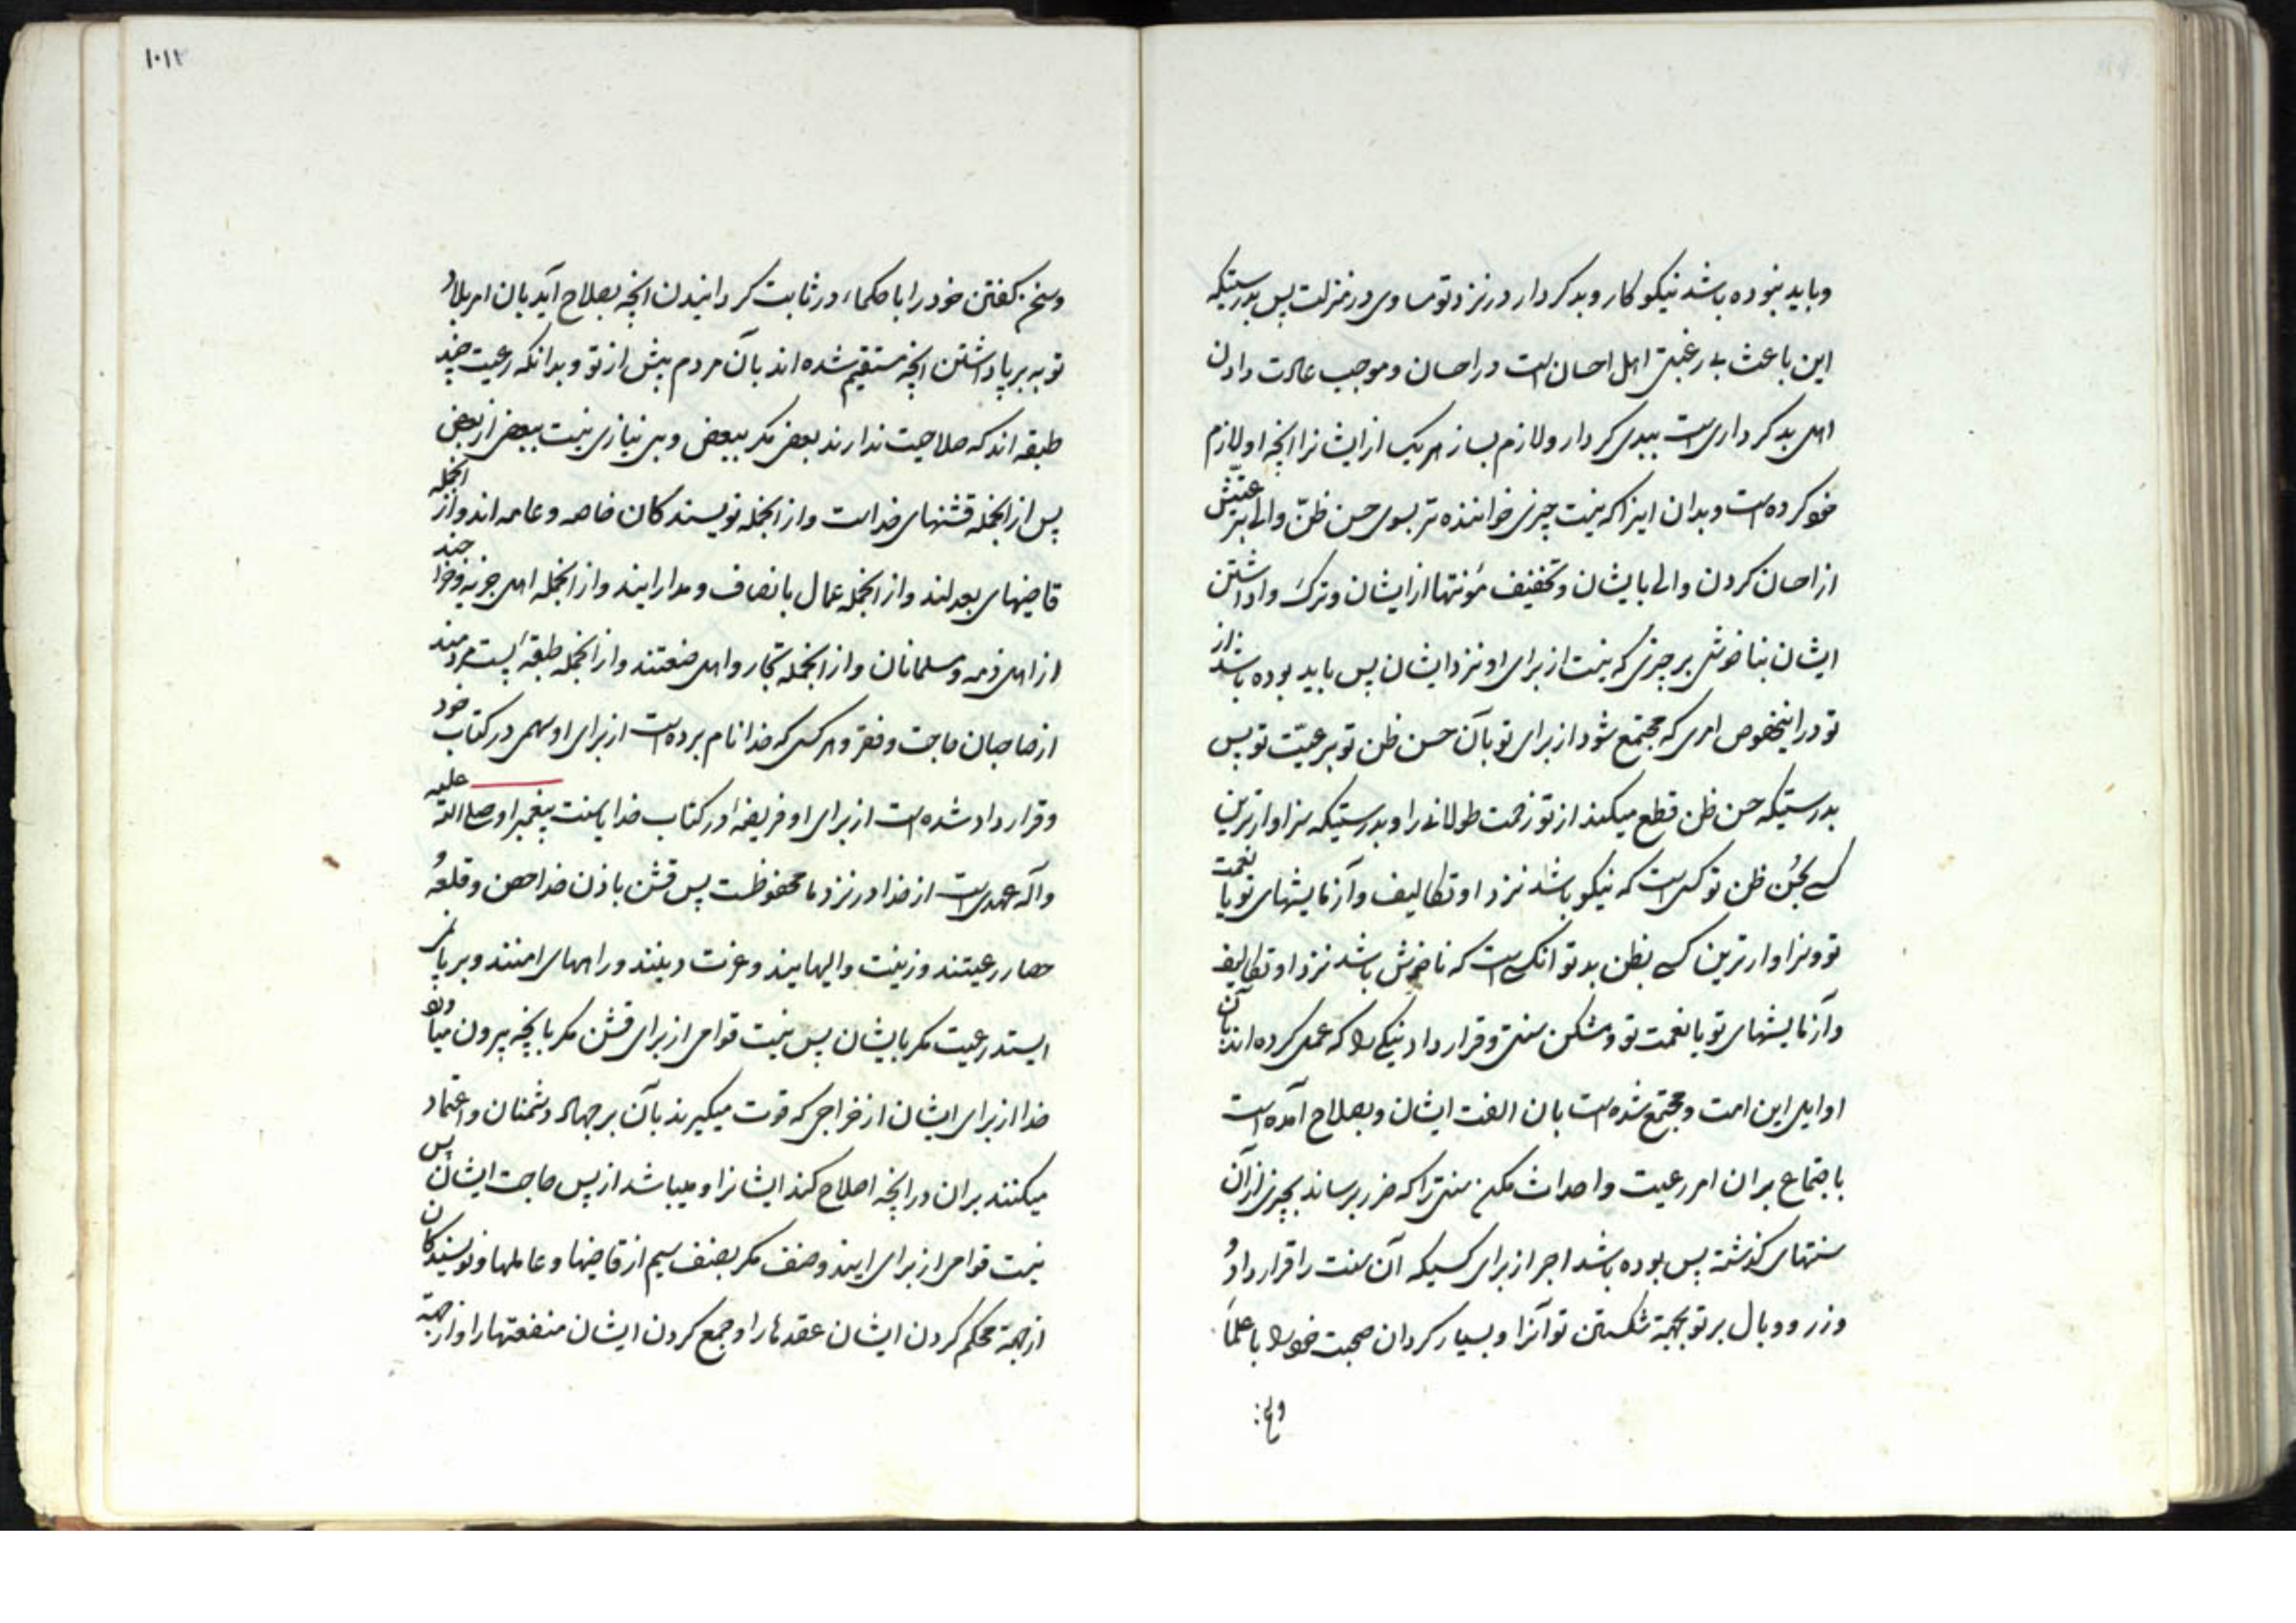 وباید نبوده باشد نیکوکار وبدکردار در نزد تو مساوی در منزلت پس بدرستیکه
این باعث بی رغبتی اهل احسان است در احسان وموجب عادت دادن
اهل بدکرداری است ببدی کردار ولازم بساز هر یک از ایشانرا انچه او لازم
خود کرده است وبدان اینرا که نیست چیزی خواننده تر بسوی حسن ظنّ والی برعیّتش
از احسان کردن والی بایشان وتخفیف مؤنتها از ایشان وترک واداشتن
ایشان بناخوشی بر چیزی که نیست از برای او نزد ایشان پس باید بوده باشد از
تو در اینخصوص امری که مجتمع شود از برای تو بآن حسن ظن تو برعیّت تو پس
بدرستیکه حسن ظن قطع میکند از تو زحمت طولانی را وبدرستیکه سزاوارترین
کسی بحُسن ظن تو کسی است که نیکو باشد نزد او تکالیف وآزمایشهای تو با نعمت
تو وسزاوارترین کسی بظن بد تو انکسی است که ناخوش باشد نزد او تکالیف
وآزمایشهای تو با نعمت تو ومشکن سنتی وقرار داد نیکی را که عمل کرده اند بآن
اوایل این امت ومجتمع شده است بان الفت ایشان وبصلاح آمده است
باجتماع بران امر رعیت واحداث مکن سنتی را که ضرر برساند بچیزی از آن
سنتهای گذشته پس بوده باشد اجر از برای کسیکه آن سنت را قرار داد و
وزر ووبال بر تو بجهة شکستن تو آنرا وبسیار کردان صحبت خود را با علمآ
وسخن کفتن خود را با حکماء در ثابت کردانیدن انچه بصلاح آید بان امر بلاد
تو به برپاداشتن انچه مستقیم شده اند بآن مردم پیش از تو وبدانکه رعیت چند
طبقه اند که صلاحیت ندارند بعض مکر ببعض وبی نیازی نیست ببعض از بعض
پس از انجمله قشنهای خداست واز انجمله نویسندکان خاصه وعامه اند واز انجمله
قاضیهای بعدلند واز انجمله عمال بانصاف ومدارایند واز انجمله اهل جزیه وخراجند
از اهل ذمه ومسلمانان واز انجمله تجار واهل صنعتند واز انجمله طبقهٔ پست مردمند
از صاحبان حاجت وفقر وهر کسی که خدا نام برده است از برای او سهمی در کتاب خود
وقرار داد شده است از برای او فریضه در کتاب خدا یا سنت پیغمبر او صلی الله علیه
وآله عهدی است از خدا در نزد ما محفوظست پس قشن باذن خدا حصن وقلعه و
حصار رعیتند وزینت والیهایند وعزت دینند وراههای امنند وبرپا نمی
ایستد رعیت مکر بایشان پس نیست قوامی از برای قشن مکر بانچه بیرون میآورد
خدا از برای ایشان از خراجی که قوت میگیرند بآن بر جهاد دشمنان واعتماد
میکنند بران در انچه اصلاح کند ایشانرا ومیباشد از پس حاجت ایشان پس
نیست قوامی از برای ایندو صنف مکر بصنف سیم از قاضیها وعاملها ونویسندکان
از جهة محکم کردن ایشان عقدها را وجمع کردن ایشان منفعتها را واز جهة